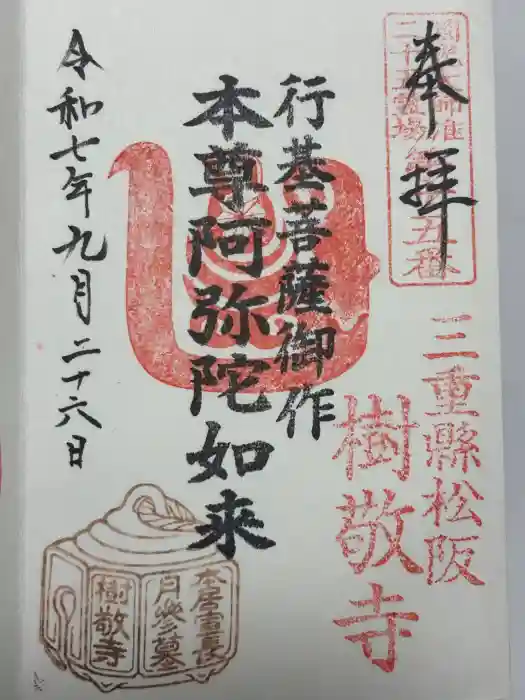 奉拝
二十五霊場
三重縣松阪
樹敬寺
行基菩薩御作
本尊阿弥陀如来
令和七年九月二十六日
本居宣長
月參墓
樹敬寺